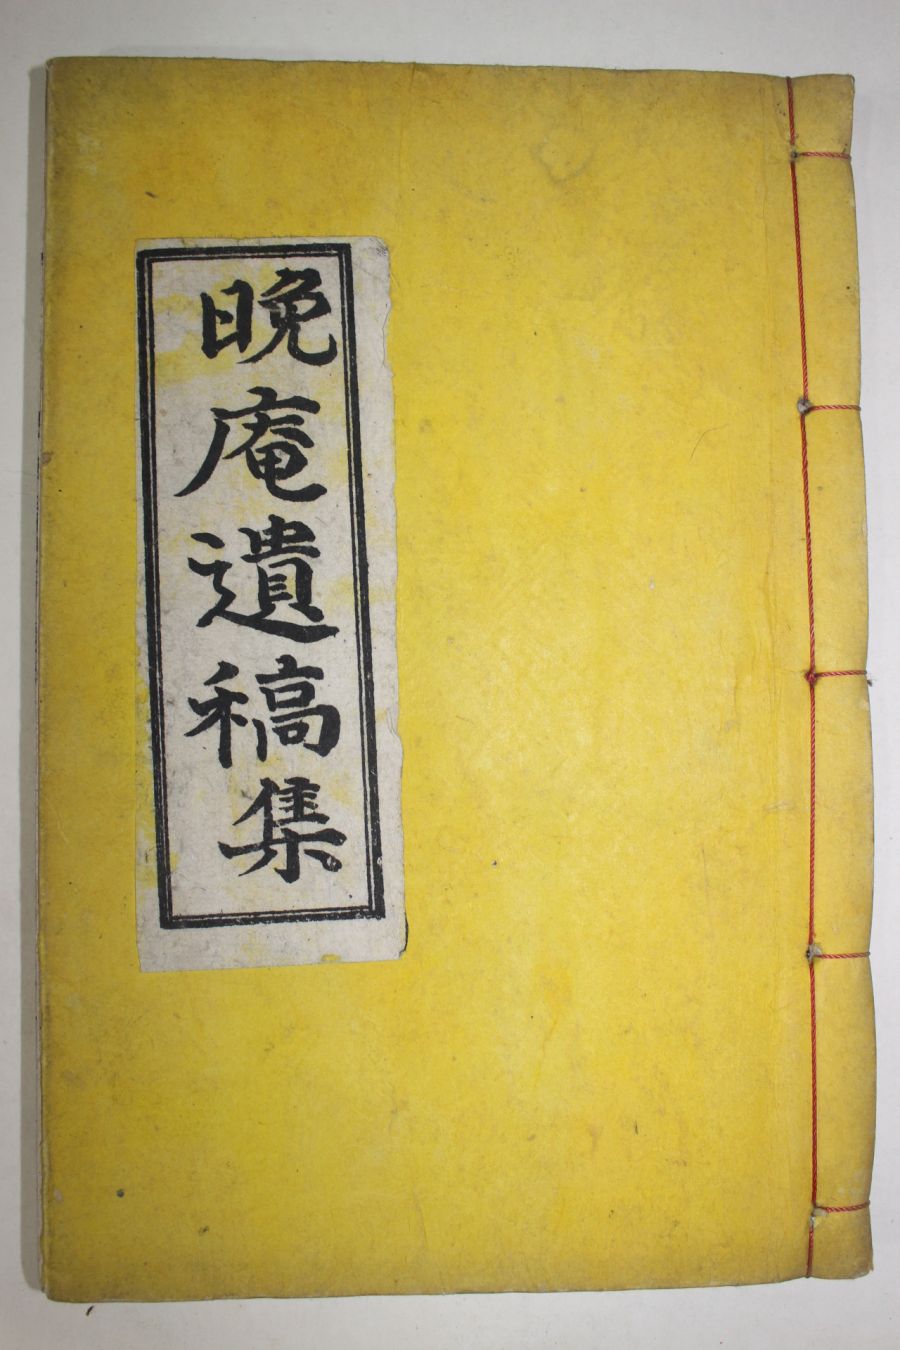 晚庵遺稿集